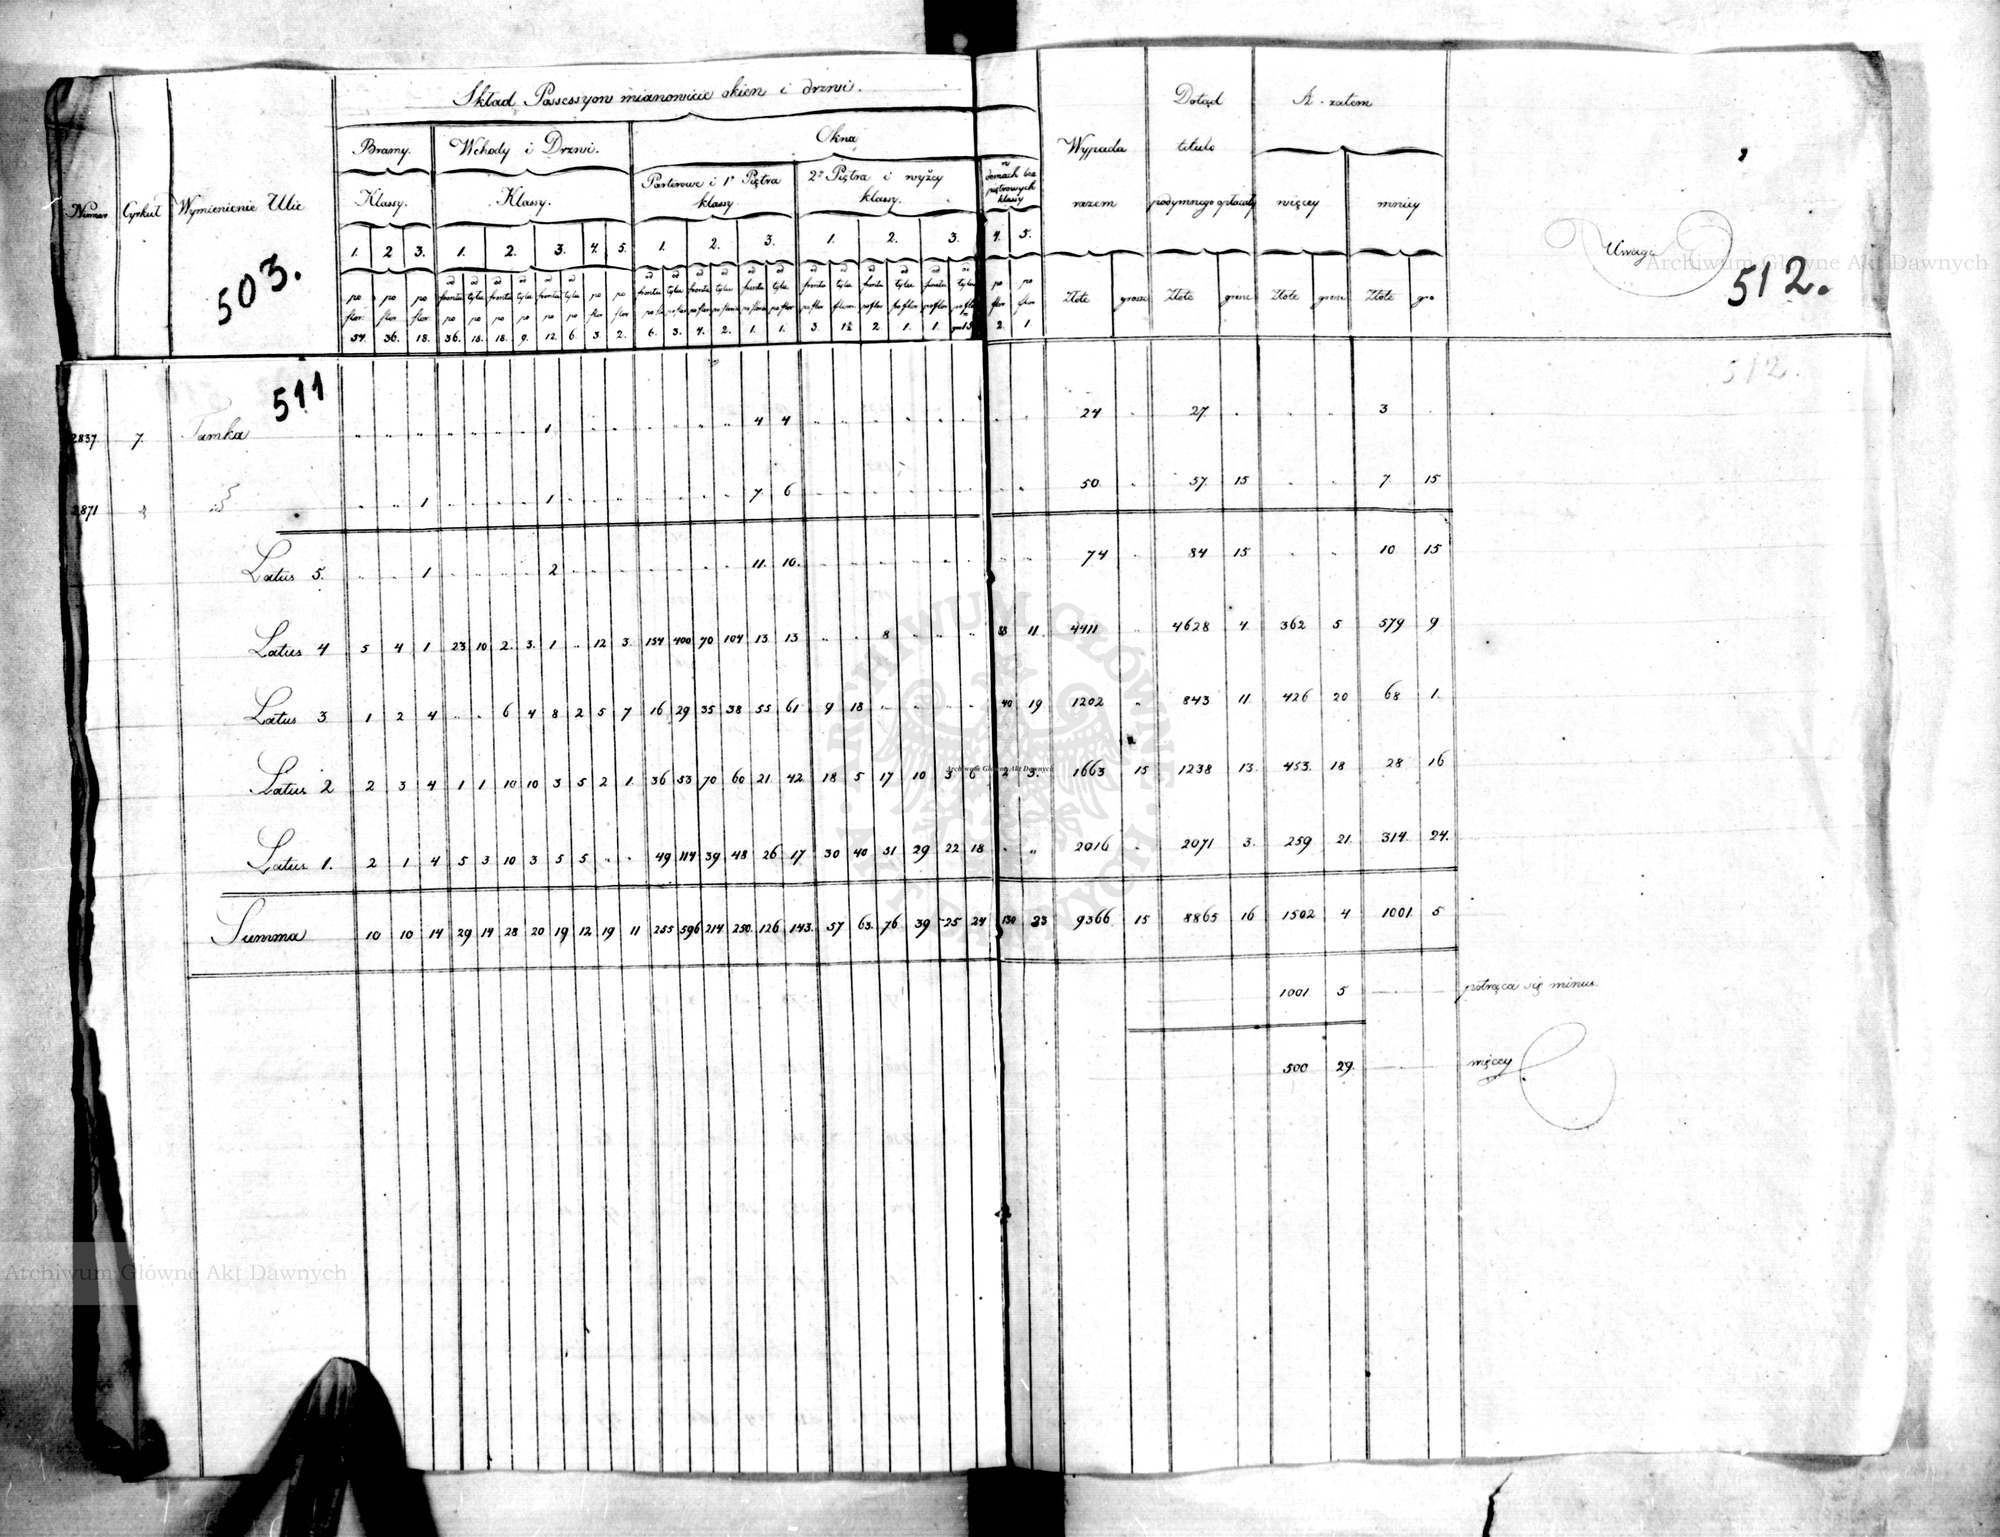 Skład Possessyow mianowicie okien i drzwi.
Bramy. Wchody i Drzwi. Okna
Klassy. Klassy. Parterowe i 1º Piętra klassy. 2º Piętra i wyżey klassy. w domach bez piętrowych klassy
Numer Cyrkuł Wymienienie Ulic
Wypada razem
Dotąd titulo podymnego opłacały
A zatem
więcey mniey
Uwagi
503.
512.
1. 2 3. 1. 2. 3. 4. 5. 1. 2. 3. 1. 2. 3. 4. 5.
od frontu od tyłu od frontu od tyłu od frontu od tyłu
po flor. 54. po flor. 36. po flor. 18. po 36. po 18. po 18. po 9. po 12. po 6. po flor 3. po flor 2.
6. 3. 4. 2. 1. 1. 3. 1½ 2. 1. 1. po flor 2. po flor 1.
złote grosze złote grosze złote grosze złote gro
511
512.
2837 7. Tamka 1 4 4 24 27. 3
2871 1 1 7. 6 50 57. 15 7. 15
Latus 5. 1 2 11. 10. 74 84 15 10 15
Latus 4 5 4 1 23 10 2. 3. 1 12 3. 154 400 70 104 13 13 8 88 11. 4411 4628 4. 362 5 579 9
Latus 3 1 2 4 6 4 8 2 5 7 16 29 35 38 55 61 9 18 40 19 1202 843 11. 426 20 68 1.
Latus 2 2 3 4 1 1 10 10 3 5 2 1. 36 53 70 60 21. 42 18 5 17 10 3 6 2 3. 1663 15 1238 13. 453. 18 28 16
Latus 1. 2 1 4 5 3 10 3 5 5 49 114 39 48 26 17 30 40 51 29 22 18 2016 2071 3. 259 21. 314. 24.
Summa 10 10 14 29 14 28 20 19 12 19 11 255 596 214 250. 126 143. 57 63. 76 39 25 24 130 33 9366 15 8865 16 1502 4 1001. 5
1001 5 potrąca się minus.
500 29. więcey
Archiwum Główne Akt Dawnych
Archiwum Główne Akt Dawnych
Archiwum Główne Akt Dawnych
ARCHIWUM GŁÓWNE AKT DAWNYCH